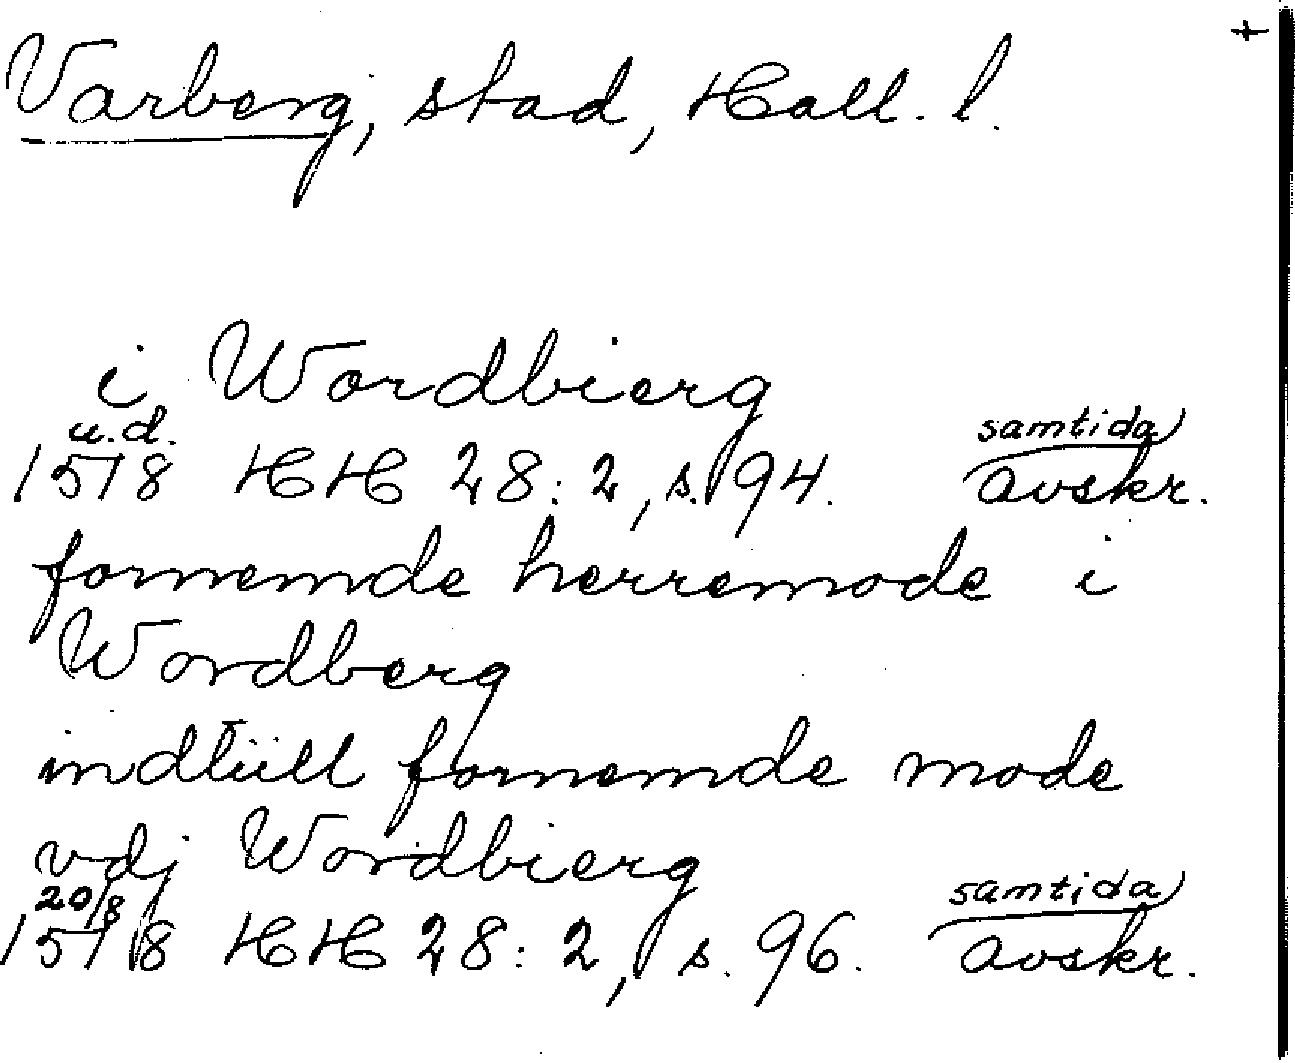 Varberg, stad, Hall. l. +
i Wordbierg
u.d. samtida
1518 HH 28:2, s. 94. avskr.
fornemde herremode i
Wordberg
indtiill fornemde mode
vdj Wordbierg
20/8 samtida
1518 HH 28:2, s. 96. avskr.